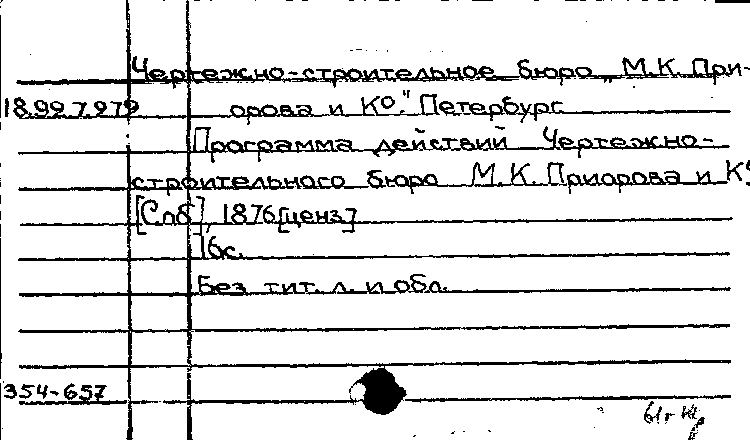 Чертежно-строительное бюро „М.К. При-
18.99.7.979 орова и К⁰." Петербург
Программа действий Чертежно-
строительного бюро М.К. Приорова и К⁰
[Спб], 1876[ценз]
16с.
Без тит. л. и обл.
354-657